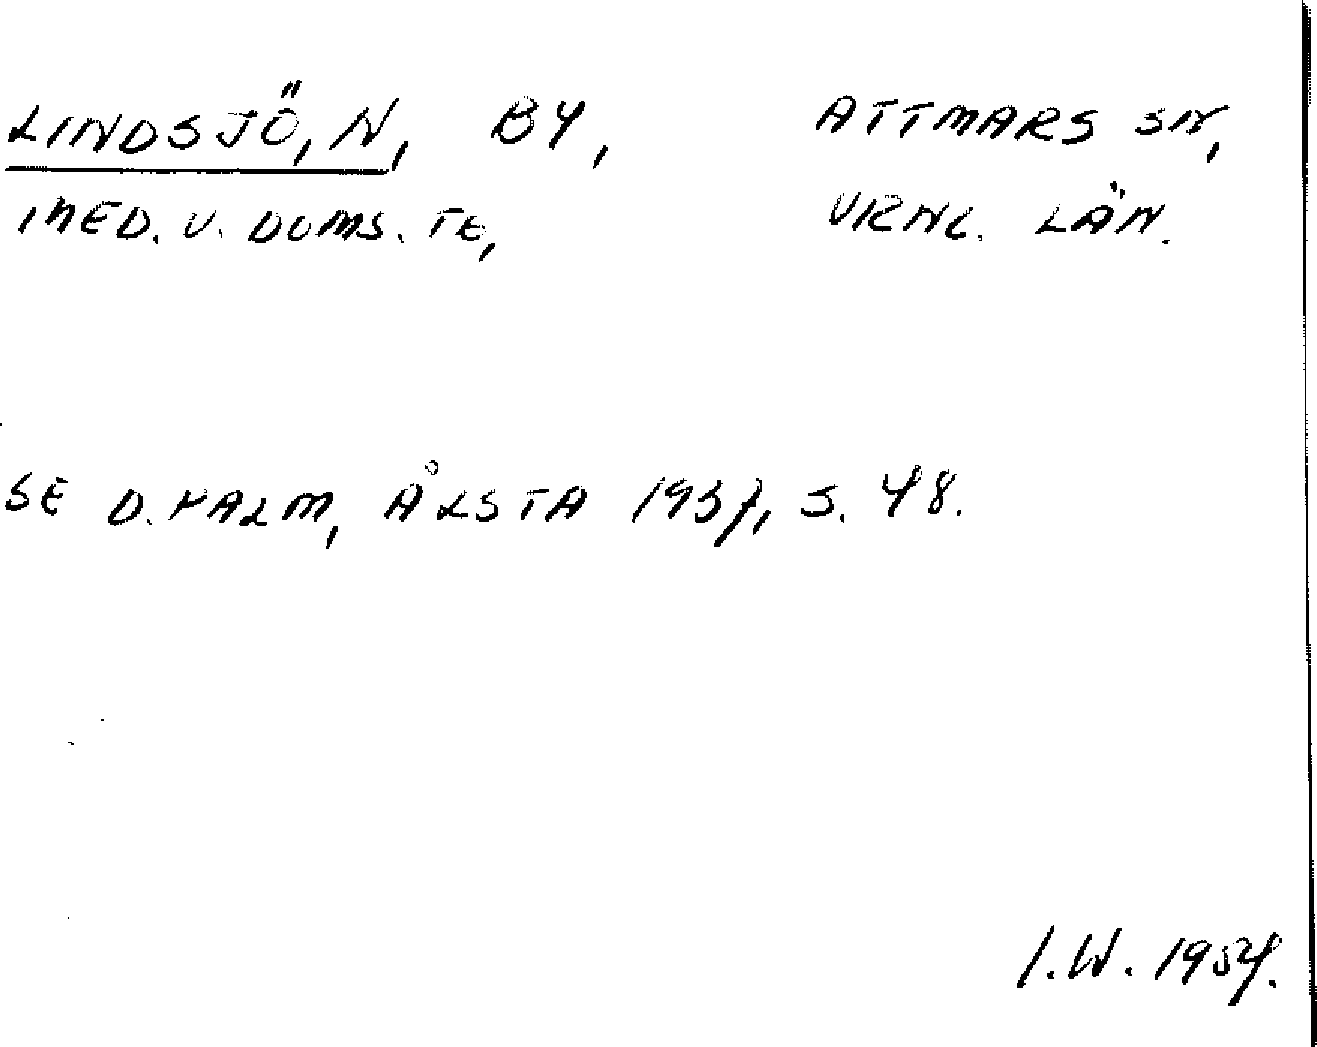 LINDSJÖ, N, BY, ATTMARS SN,
MED. V. DOMS. TE, VRNL. LÄN.
SE D. PALM, ÅLSTA 1937, S. 48.
I.W. 1954.